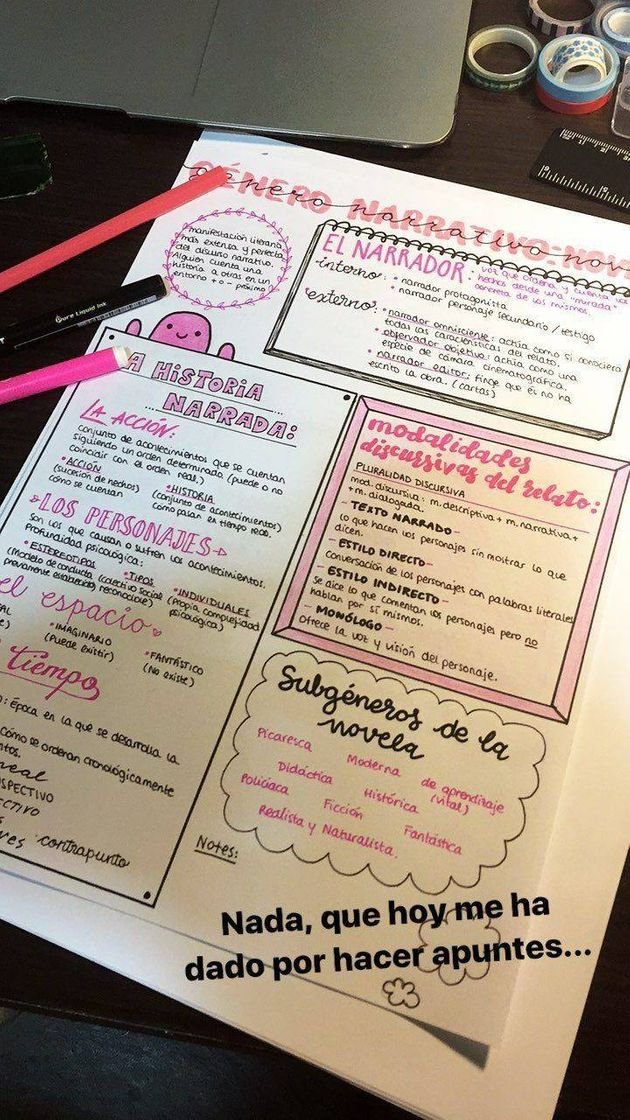 GÉNERO NARRATIVO: NOV
género narrativo: nov
manifestación literaria
más extensa y perfecta
del discurso narrativo.
Alguien cuenta una
historia a otros en un
entorno + o - próximo
EL NARRADOR: voz que ordena y cuenta los
hechos desde una "mirada"
concreta de los mismos.
interno: • narrador protagonista
• narrador personaje secundario / testigo
externo: • narrador omnisciente: actúa como si conociera
todas las características del relato.
• observador objetivo: actúa como una
especie de cámara cinematográfica.
• narrador editor: finge que él no ha
escrito la obra. (cartas)
Pure Liquid Ink
A HISTORIA
NARRADA:
LA ACCIÓN:
conjunto de acontecimientos que se cuentan
siguiendo un orden determinado (puede o no
coincidir con el orden real.)
• ACCIÓN
(sucesión de hechos)
cómo se cuentan
• HISTORIA
(conjunto de acontecimientos)
Como pasan en tiempo real.
LOS PERSONAJES
Son los que causan o sufren los acontecimientos.
Profundidad psicológica:
• ESTEREOTIPOS
(Modelo de conducta
previamente establecido)
• TIPOS
(colectivo social
reconocible)
• INDIVIDUALES
(Propia complejidad
psicológica)
el espacio
• IMAGINARIO
(Puede existir)
• FANTÁSTICO
(No existe)
tiempo
: Época en la que se desarrolla la
cómo se ordenan cronológicamente
ntos.
neal
OSPECTIVO
ECTIVO
contrapunto
modalidades
discursivas del relato:
PLURALIDAD DISCURSIVA
mod. discursiva: m. descriptiva + m. narrativa +
+ m. dialogada.
- TEXTO NARRADO -
lo que hacen los personajes sin mostrar lo que
dicen.
- ESTILO DIRECTO -
Conversación de los personajes con palabras literales
- ESTILO INDIRECTO -
Se dice lo que comentan los personajes pero no
hablan por sí mismos.
- MONÓLOGO -
Ofrece la voz y visión del personaje.
Subgéneros de la
novela
Picaresca
Moderna
de aprendizaje
(vital)
Didáctica
Policíaca
Histórica
Ficción
Fantástica
Realista y Naturalista.
Notes:
Nada, que hoy me ha
dado por hacer apuntes...